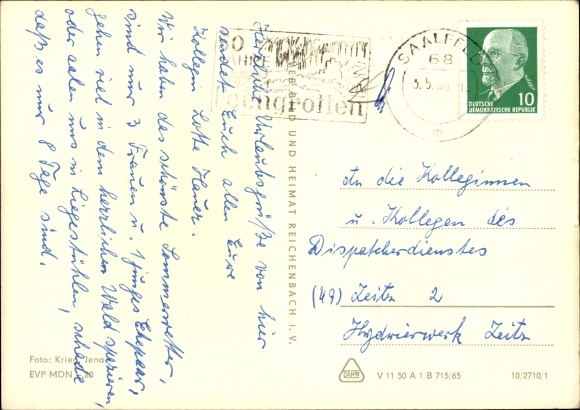 Herzliche Urlaubsgrüße von hier
sendet Euch allen Eure
Kollegin Lotte Hauer.
Wir haben das schönste Sommerwetter,
sind nur 3 Frauen u. 1 junges Ehepaar,
gehen viel in dem herrlichen Wald spazieren,
oder aalen uns in Liegestühlen, schade
daß es nur 8 Tage sind.
Foto: Krien, Jena
EVP MDN 0,20
BILD UND HEIMAT REICHENBACH I. V.
JAHRE
Feengrotten
SAALFELD
68
DEUTSCHE
DEMOKRATISCHE REPUBLIK
10
An die Kolleginnen
u. Kollegen des
Dispatcherdienstes
(49) Zeitz 2
Hydrierwerk Zeitz
V 11 50 A 1 B 715/65
10/2710/1